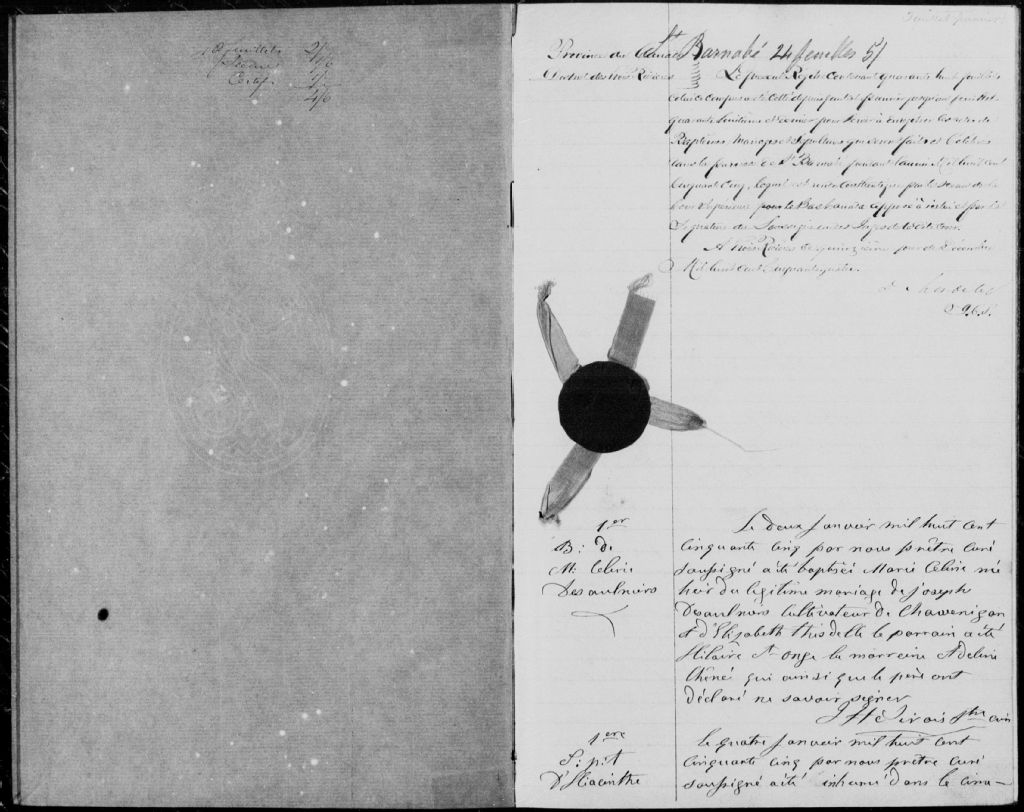 2/6
4/6
Province du Canada
District des Trois Rivières
St Barnabé 24 feuilles 51
Le present Registre contenant quarante huit feuillets
premier jusqu'au feuillet
quarante huitième et dernier pour servir à enregistrer les actes de
Baptêmes Mariages et Sépultures qui seront faits et célébrés
dans la paroisse de St Barnabé pendant l'année Mil huit cent
Cinquante Cinq, lequel est par le sceau de la
Cour Supérieure pour le Bas Canada apposé à et par la
Signature du
A Trois Rivières le quinzième jour de Décembre
Mil huit cent cinquante quatre.
1er
B: de
M. Celirie
Desaulniers
Le deux Janvier mil huit cent
cinquante cinq par nous prêtre curé
soussigné a été baptisée Marie Celirie née
hier du légitime mariage de Joseph
Desaulniers cultivateur de Chawenigan
et d'Elizabeth Thisdelle le parrain a été
Hilaire St onge la marraine Adeline
Chêné qui ainsi que le père ont
déclaré ne savoir signer
J H Sirois Ptre curé
1ere
S: pit
D'Hiacinthe
Le quatre Janvier mil huit cent
cinquante cinq par nous prêtre curé
soussigné a été inhumé dans le cime-